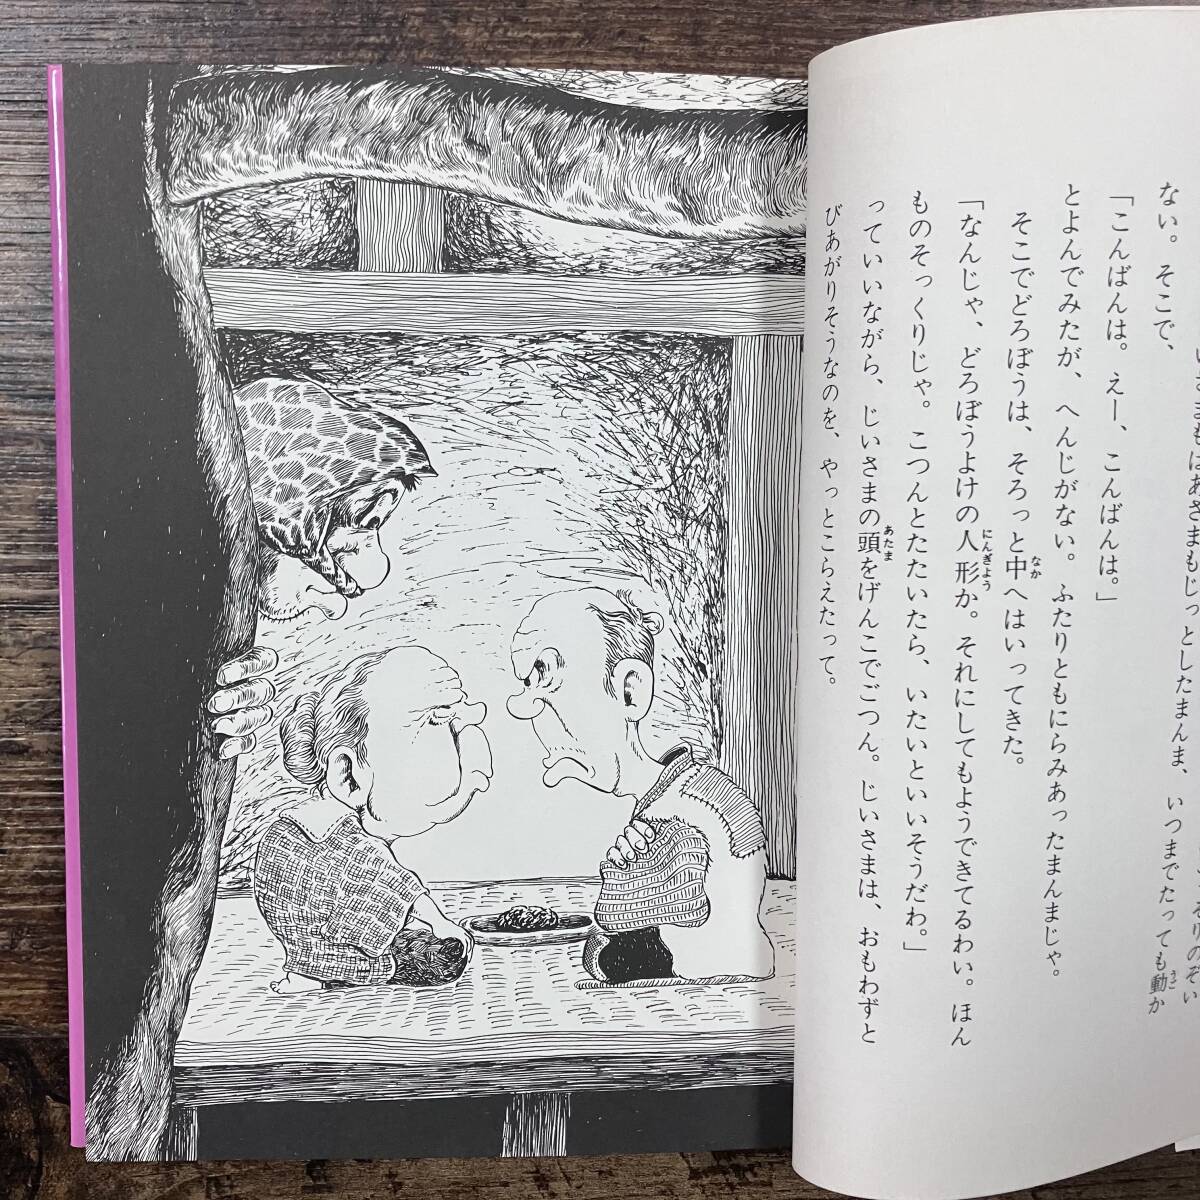 りのぞい
さまもばあさまもじっとしたまんま、いつまでたっても動か
ない。そこで、
「こんばんは。えー、こんばんは。」
とよんでみたが、へんじがない。ふたりともにらみあったまんまじゃ。
なか
そこでどろぼうは、そろっと中へはいってきた。
にんぎよう
「なんじゃ、どろぼうよけの人形か。それにしてもようできてるわい。ほん
ものそっくりじゃ。こつんとたたいたら、いたいといいそうだわ。」
あたま
っていいながら、じいさまの頭をげんこでごつん。じいさまは、おもわずと
びあがりそうなのを、やっとこらえたって。